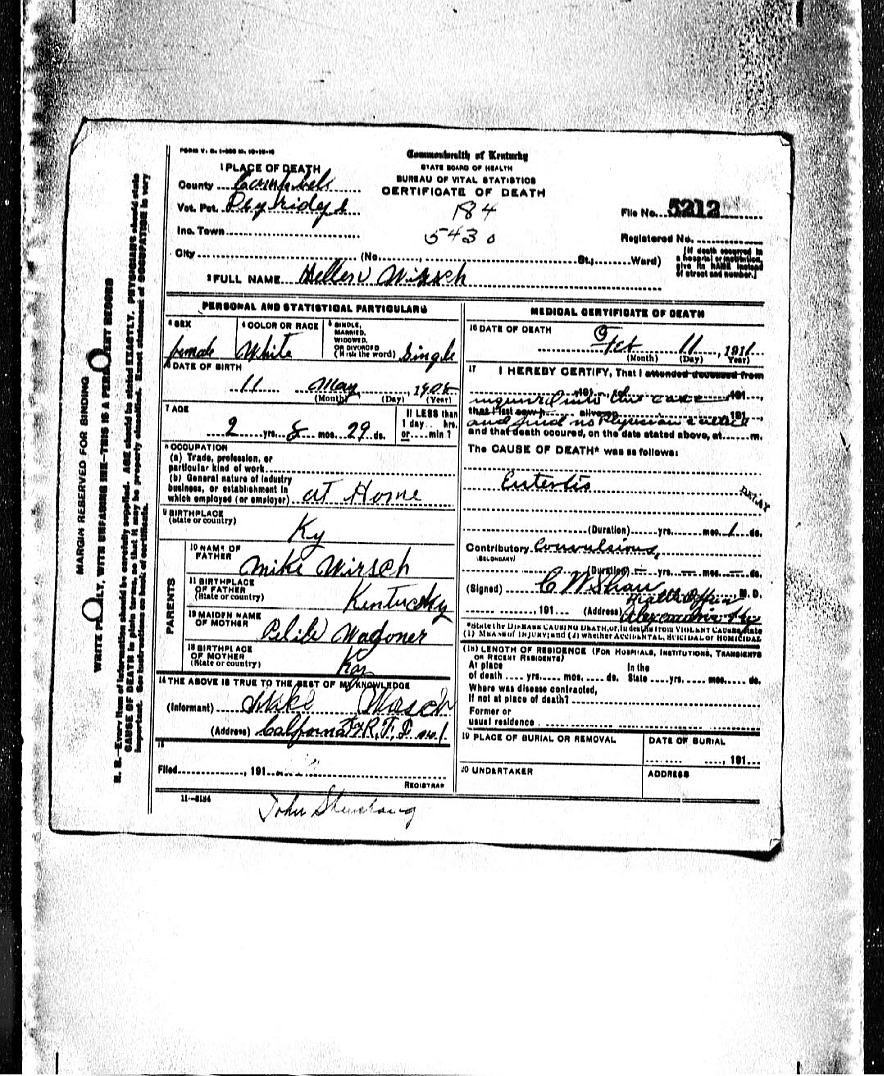 FORM V. S. 1-
Commonwealth of Kentucky
STATE BOARD OF HEALTH
BUREAU OF VITAL STATISTICS
CERTIFICATE OF DEATH
1 PLACE OF DEATH
County Campbell
Vot. Pct.
Inc. Town
184
5430
File No. 5212
Registered No.
City (No. , St.; Ward)
[If death occurred in a hospital or institution, give its NAME instead of street and number.]
2 FULL NAME Hellen Wirsch
PERSONAL AND STATISTICAL PARTICULARS
3 SEX
female
4 COLOR OR RACE
White
5 SINGLE, MARRIED, WIDOWED, OR DIVORCED (Write the word) Single
6 DATE OF BIRTH
11 May 190
(Month) (Day) (Year)
7 AGE
2 yrs. 8 mos. 29 ds.
If LESS than 1 day.. hrs. or.... min?
8 OCCUPATION
(a) Trade, profession, or
particular kind of work
(b) General nature of industry
business, or establishment in
which employed (or employer) at Home
9 BIRTHPLACE
(State or country)
Ky
PARENTS
10 NAME OF FATHER
Mike Wirsch
11 BIRTHPLACE OF FATHER
(State or country)
Kentucky
12 MAIDEN NAME OF MOTHER
Wagoner
13 BIRTHPLACE OF MOTHER
(State or country)
Ky
14 THE ABOVE IS TRUE TO THE BEST OF MY KNOWLEDGE
(Informant) Mike Wirsch
(Address) California Ky R.F.D. No. 1
15
Filed , 191
REGISTRAR
11-3184
John
MEDICAL CERTIFICATE OF DEATH
16 DATE OF DEATH
Feb 11, 1911
(Month) (Day) (Year)
17 I HEREBY CERTIFY, That I attended deceased from
inquired into this case
that I last saw h alive on 191
and find no Physician
and that death occured, on the date stated above, at m.
The CAUSE OF DEATH* was as follows:
Enteritis
(Duration) yrs. mos. 1 ds.
Contributory Convulsions,
(SECONDARY)
(Duration) — yrs. — mos. — ds.
(Signed) C W Shaw M. D.
Health Officer
, 191 (Address) Alexandria Ky
*State the DISEASE CAUSING DEATH, or, in deaths from VIOLENT CAUSES, state
(1) MEANS of INJURY; and (2) whether ACCIDENTAL, SUICIDAL or HOMICIDAL
(18) LENGTH OF RESIDENCE (FOR HOSPITALS, INSTITUTIONS, TRANSIENTS
OR RECENT RESIDENTS)
At place of death yrs. mos. ds. In the State yrs. mos. ds.
Where was disease contracted,
If not at place of death?
Former or
usual residence
19 PLACE OF BURIAL OR REMOVAL
DATE OF BURIAL
, 191
20 UNDERTAKER
ADDRESS
MARGIN RESERVED FOR BINDING
WRITE PLAINLY, WITH UNFADING INK—THIS IS A PERMANENT RECORD
N. B.—Every item of information should be carefully supplied. AGE should be stated EXACTLY. PHYSICIANS should state
CAUSE OF DEATH in plain terms, so that it may be properly classified. Exact statement of OCCUPATION is very
important. See instructions on back of certificate.